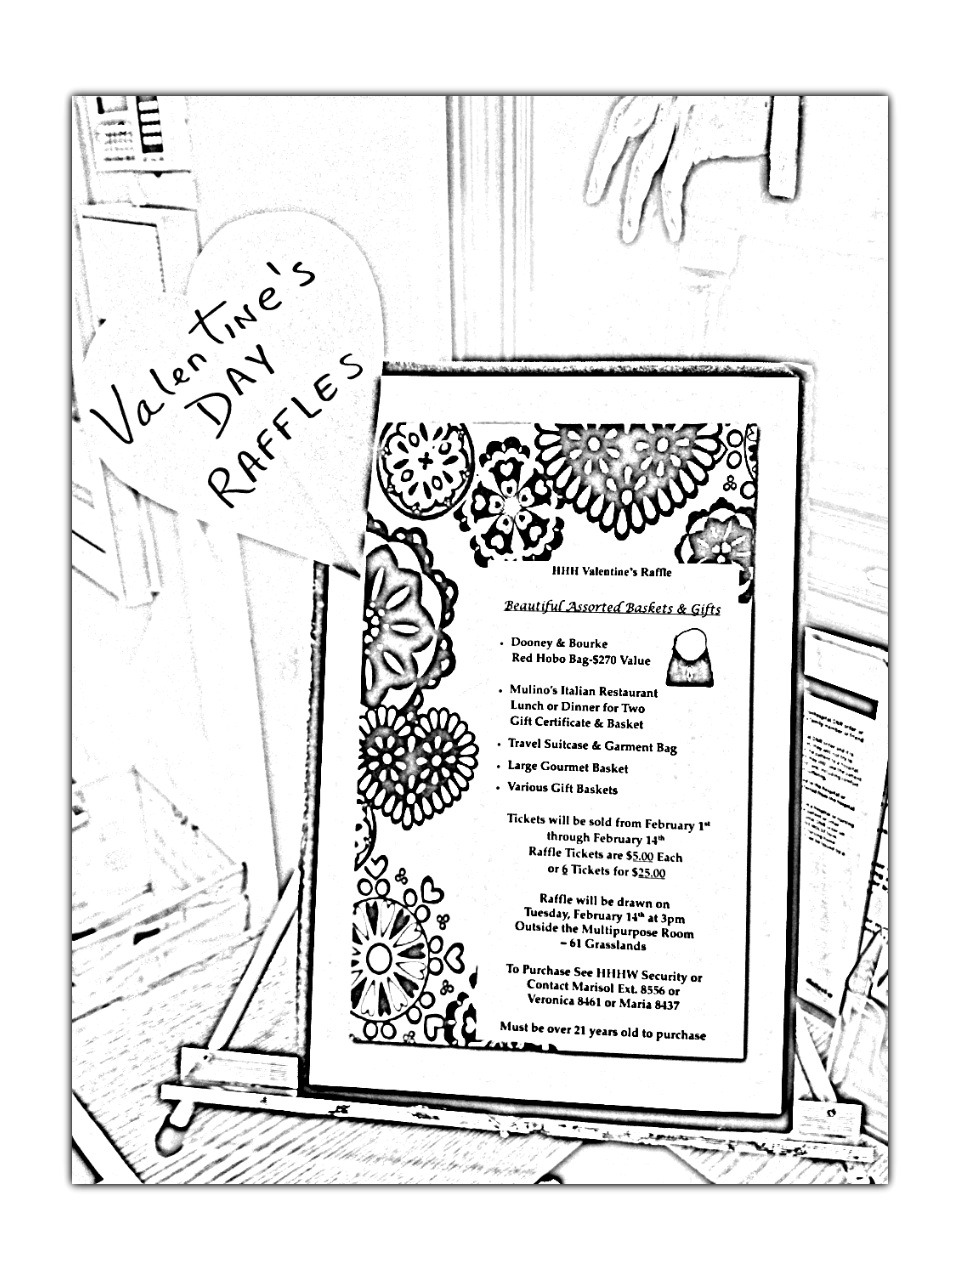 Valentine's
DAY
RAFFLES
HHH Valentine's Raffle
Beautiful Assorted Baskets & Gifts
• Dooney & Bourke
Red Hobo Bag-$270 Value
• Mulino's Italian Restaurant
Lunch or Dinner for Two
Gift Certificate & Basket
• Travel Suitcase & Garment Bag
• Large Gourmet Basket
• Various Gift Baskets
Tickets will be sold from February 1st
through February 14th
Raffle Tickets are $5.00 Each
or 6 Tickets for $25.00
Raffle will be drawn on
Tuesday, February 14th at 3pm
Outside the Multipurpose Room
– 61 Grasslands
To Purchase See HHHW Security or
Contact Marisol Ext. 8556 or
Veronica 8461 or Maria 8437
Must be over 21 years old to purchase